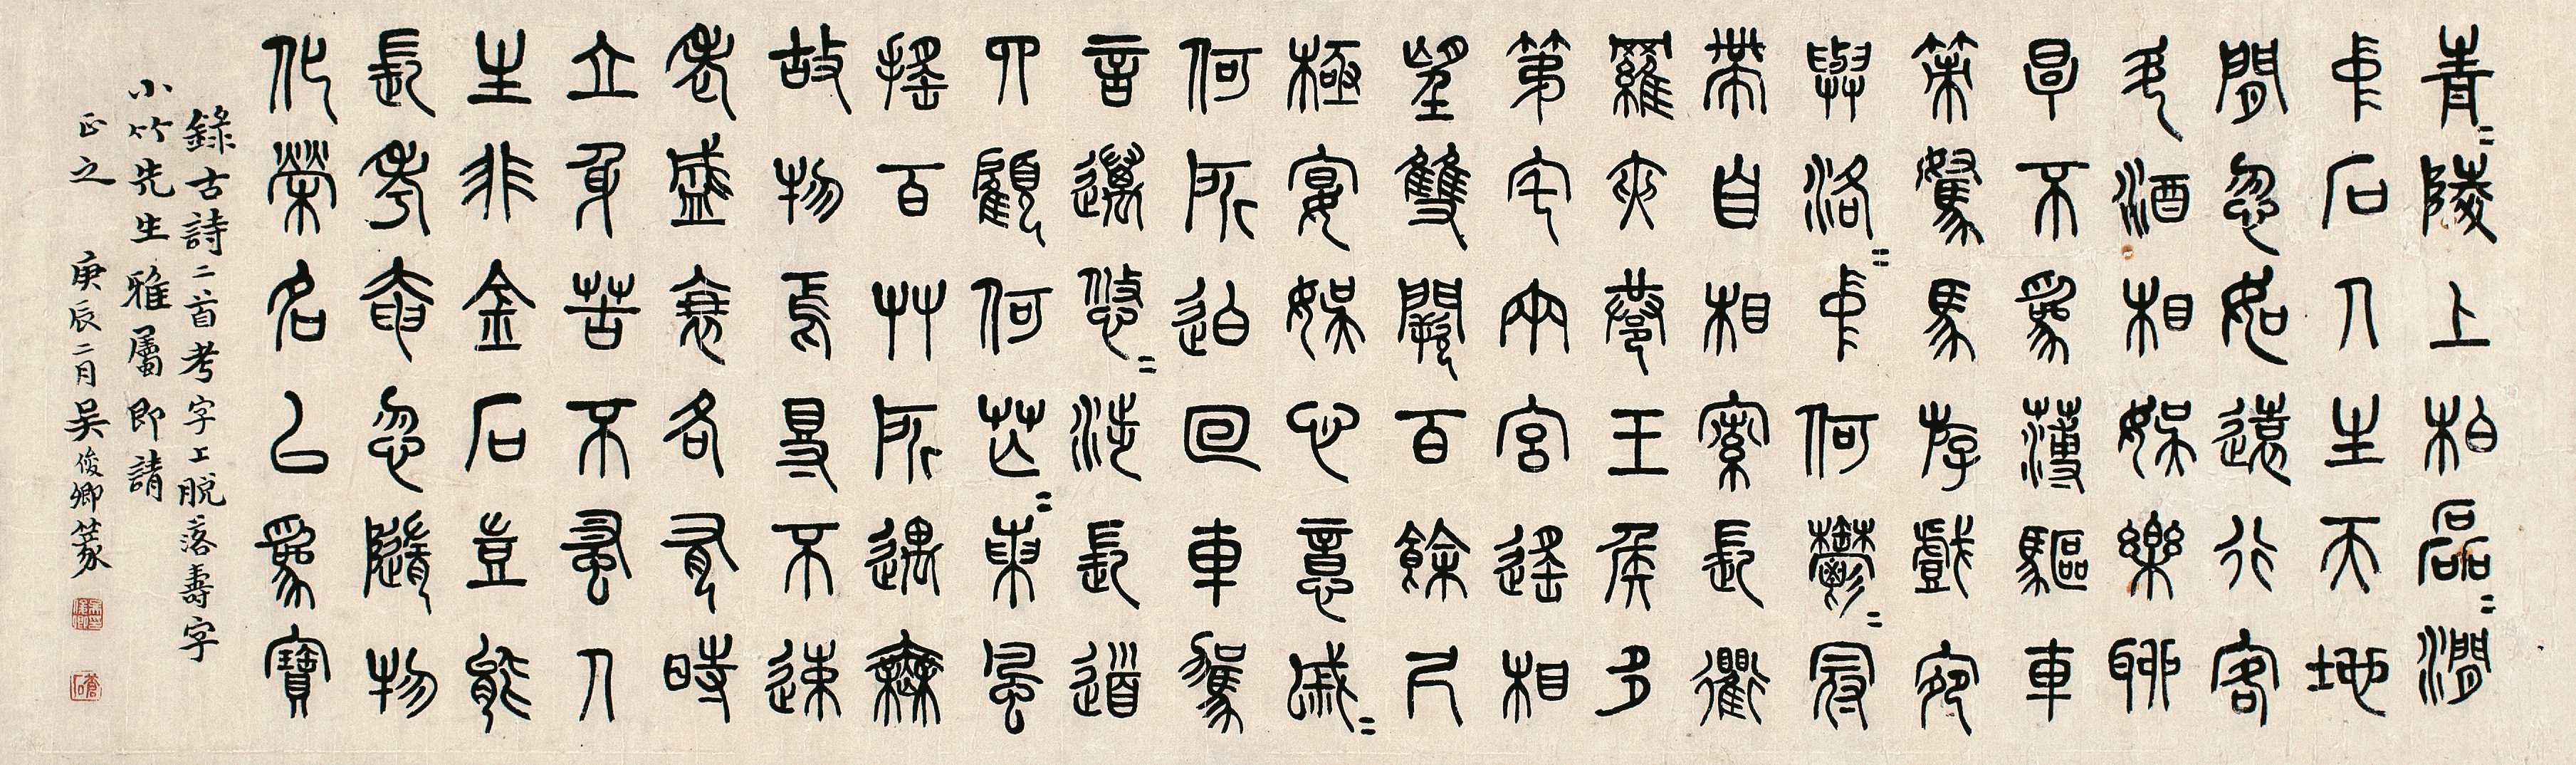 青〻陵上柏磊〻澗
中石人生天地
間忽如遠行客
斗酒相娛樂聊
厚不為薄驅車
策駑馬游戲宛
與洛〻中何鬱〻冠
帶自相索長衢
羅夾巷王侯多
第宅兩宮遙相
望雙闕百餘尺
極宴娛心意戚〻
何所迫回車駕
言邁悠〻涉長道
四顧何茫〻東風
搖百艸所遇無
故物焉得不速
老盛衰各有時
立身苦不蚤人
生非金石豈能
長考奄忽隨物
化榮名以為寶
錄古詩二首考字上脫落壽字
小竹先生雅屬即請
正之 庚辰二月吳俊卿篆